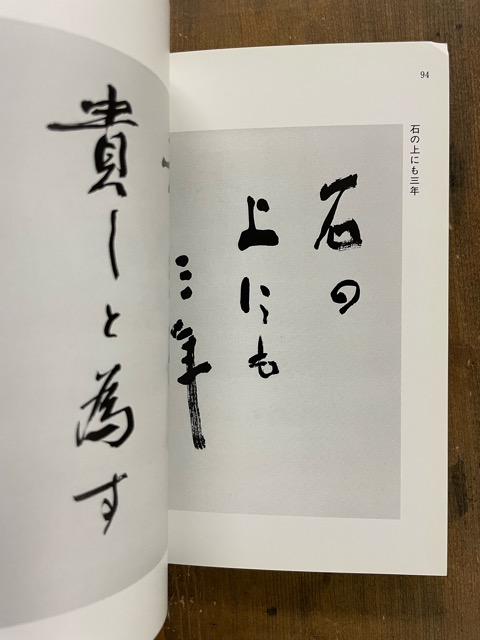 94
石の上にも三年
石の
上にも
三年
貴しと為す